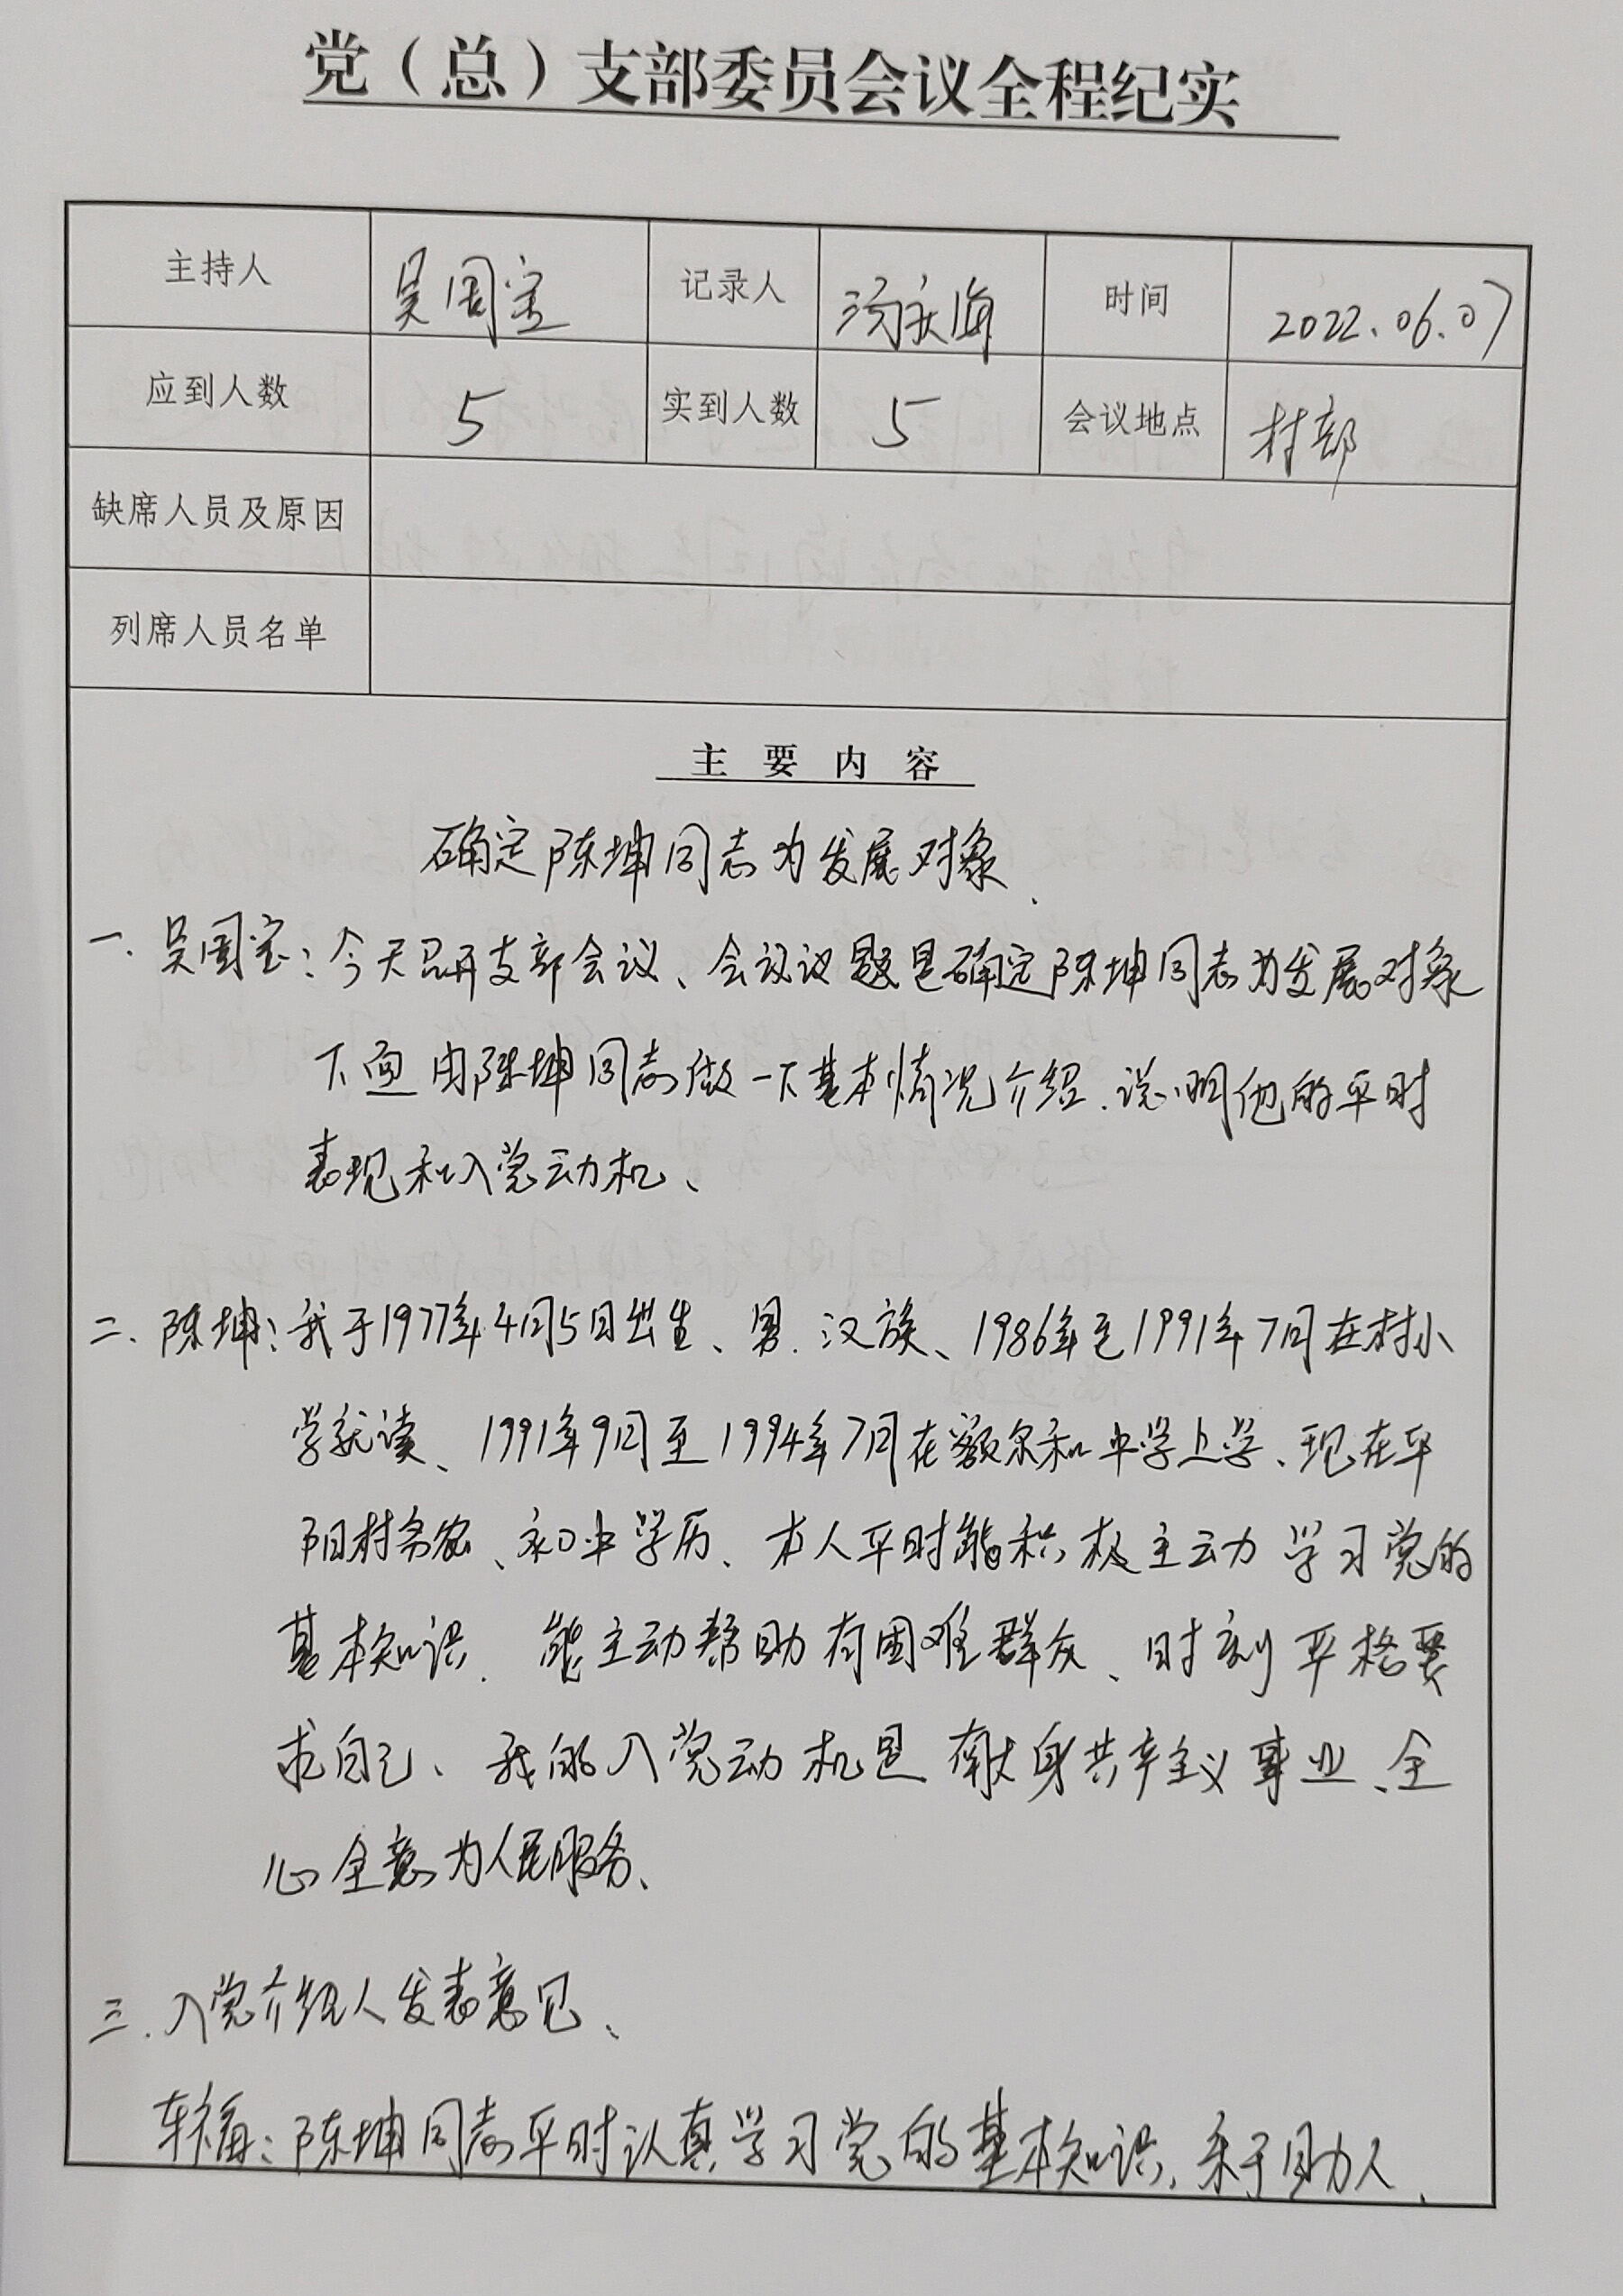 党（总）支部委员会议全程纪实
主持人 吴国宝 记录人 汤永海 时间 2022.06.07
应到人数 5 实到人数 5 会议地点 村部
缺席人员及原因
列席人员名单
主 要 内 容
确定陈坤同志为发展对象.
一.吴国宝：今天召开支部会议、会议议题是确定陈坤同志为发展对象
下面由陈坤同志做一下基本情况介绍.说明他的平时
表现和入党动机、
二、陈坤：我于1977年4月5日出生、男.汉族、1986年至1991年7月在村小
学就读、1991年9月至1994年7月在额尔和中学上学、现在平
阳村务农、初中学历、本人平时能积极主动学习党的
基本知识.能主动帮助有困难群众、时刻严格要
求自己、我的入党动机是献身共产主义事业、全
心全意为人民服务、
三.入党介绍人发表意见、
车福：陈坤同志平时认真学习党的基本知识、乐于助人、